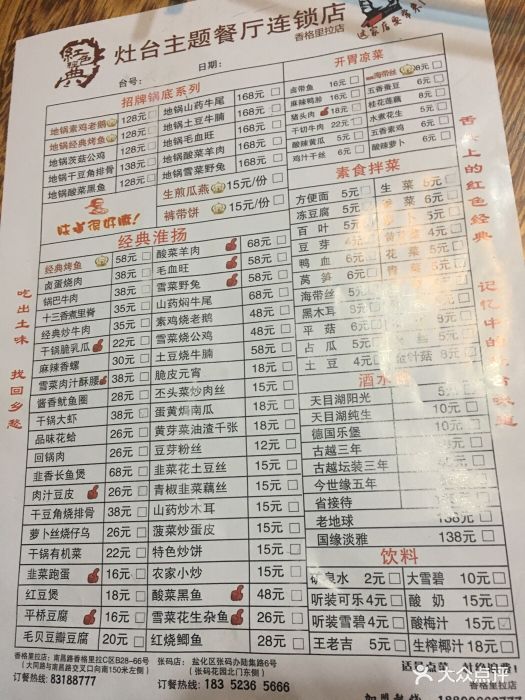 红色经典
灶台主题餐厅连锁店
香格里拉店
台号：
日期：
招牌锅底系列
地锅素鸡老鹅 128元
地锅经典烤鱼 128元
地锅茨菇公鸡 128元
地锅干豆角排骨 128元
地锅酸菜黑鱼 128元
地锅山药牛尾 168元
地锅土豆牛腩 168元
地锅毛血旺 168元
地锅酸菜羊肉 168元
地锅雪菜野兔 168元
生煎瓜燕 15元/份
裤带饼 15元/份
经典淮扬
经典烤鱼 58元
卤蛋烧肉 38元
锅巴牛肉 38元
十三香煮里脊 35元
经典炒牛肉 35元
干锅脆乳瓜 22元
麻辣香螺 30元
雪菜肉汁酥腰 38元
酱香鱿鱼圈 28元
干锅大虾 38元
品味花蛤 26元
回锅肉 26元
韭香长鱼煲 68元
肉汁豆皮 26元
干豆角烧排骨 38元
萝卜丝烧仔乌 26元
干锅有机菜 22元
韭菜跑蛋 16元
红豆煲 18元
平桥豆腐 16元
毛贝豆瓣豆腐 20元
酸菜羊肉 68元
毛血旺 58元
雪菜野兔 58元
山药焖牛尾 68元
素鸡烧老鹅 48元
雪菜烧公鸡 48元
土豆烧牛腩 58元
脆皮元宵 18元
丕头菜炒肉丝 18元
蛋黄焗南瓜 18元
黄芽菜油渣千张 18元
豆芽粉丝 12元
韭菜花土豆丝 15元
青椒韭菜藕丝 15元
山药炒木耳 15元
菠菜炒蛋皮 15元
特色炒饼 15元
农家小炒 15元
酸菜黑鱼 48元
雪菜花生杂鱼 26元
红烧鲫鱼 28元
开胃凉菜
卤带片 16元
麻辣鸭胗 16元
猪头肉 18元
干切牛肉 22元
酸辣黄瓜 5元
鸡汁干丝 6元
海带丝 8元
五香蚕豆 6元
桂花莲藕 8元
水煮花生 5元
五香素鸡 6元
酸辣萝卜 6元
素食拌菜
方便面 5元
冻豆腐 5元
百叶 5元
豆芽 5元
鸭血 5元
莴笋 5元
海带丝 5元
黑木耳 5元
平菇 5元
占瓜 5元
土豆 5元
生菜 5元
天目湖阳光 5元
天目湖纯生 10元
德国乐堡 10元
古越三年
古越坛装三年
今世缘五年
省接待
老地球 138元
国缘淡雅 138元
饮料
矿泉水 2元
听装可乐 4元
听装雪碧 4元
王老吉 5元
大雪碧 10元
酸奶 15元
酸梅汁 15元
生榨椰汁 18元
吃出土味 找回乡愁
舌尖上的红色经典 记忆中的
香格里拉店：南昌路香格里拉C区B28-66号
（大同路与南昌路交叉口向南150米左侧）
订餐热线：83188777
张码店：盐化区张码办陆集路6号
（张码花园北门东侧）
订餐热线：183 5236 5666
大众点评